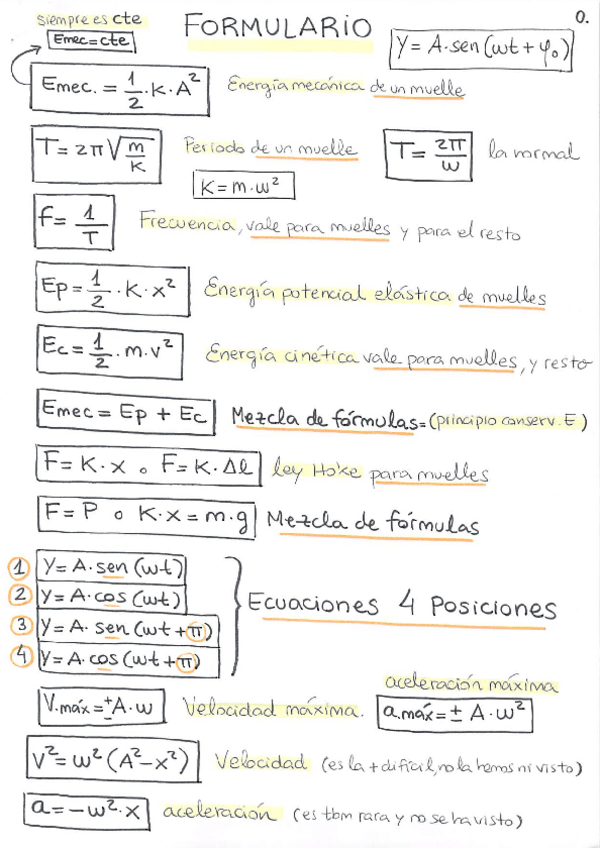 siempre es cte
Emec=cte
FORMULARIO
0.
Y = A·sen(wt + φ₀)
Emec. = 1/2·K·A² Energía mecánica de un muelle
T = 2π√(m/K) Periodo de un muelle T = 2π/w la normal
K = m·w²
f = 1/T Frecuencia, vale para muelles y para el resto
Ep = 1/2·K·x² Energía potencial elástica de muelles
Ec = 1/2·m·v² Energía cinética vale para muelles, y resto
Emec = Ep + Ec Mezcla de fórmulas = (principio conserv. E)
F = K·x o F = K·Δl ley Hoke para muelles
F = P o K·x = m·g Mezcla de fórmulas
1 Y = A·sen(wt)
2 Y = A·cos(wt)
3 Y = A·sen(wt+π)
4 Y = A·cos(wt+π)
Ecuaciones 4 Posiciones
aceleración máxima
V.máx = ±A·w Velocidad máxima. a.máx = ± A·w²
V² = w²(A²-x²) Velocidad (es la + difícil, no la hemos ni visto)
a = -w²·x aceleración (es tbm rara y no se ha visto)